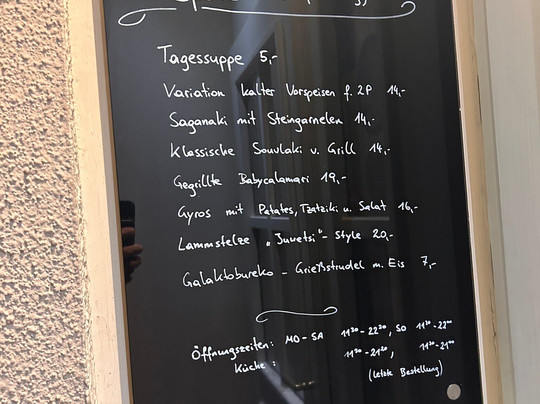 Tagessuppe 5,-
Variation kalter Vorspeisen f. 2P 14,-
Saganaki mit Steingarnelen 14,-
Klassische Souvlaki v. Grill 14,-
Gegrillte Babycalamari 19,-
Gyros mit Patates, Tzatziki u. Salat 16,-
Lammstelze „Juvetsi"- Style 20,-
Galaktobureko - Grießstrudel m. Eis 7,-
Öffnungszeiten: MO - SA 11³⁰ - 22³⁰, SO 11³⁰ - 22⁰⁰
Küche: 11³⁰ - 21³⁰, 11³⁰ - 21⁰⁰
(letzte Bestellung)